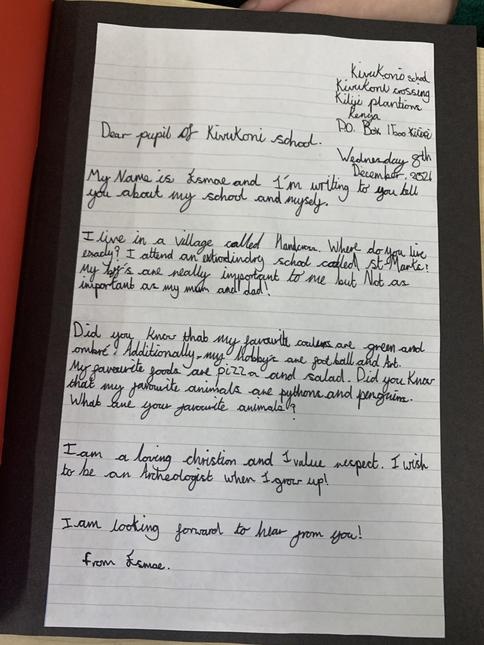 Kivukoni school
Kivukoni crossing
Kilifi plantions
Kenya
P.O. Box 1500 Kilifi
Dear pupil of Kivukoni school.
Wednesday 8th
December. 2021
My Name is Esmae and I'm writing to you tell
you about my school and myself.
I live in a village called Where do you live
exacly? I attend an school called st-Marks!
My are really important to me but Not as
important as my mum and dad!
Did you know that my favourite are green and
ombré? Additionally, my hobby's are foot ball and Art.
My favourite foods are pizza and salad. Did you know
that my favourite animals are pythons and penguins.
What are your favourite animals?
I am a loving christion and I value respect. I wish
to be an Archeologist when I grow up!
I am looking forward to hear from you!
from Esmae.